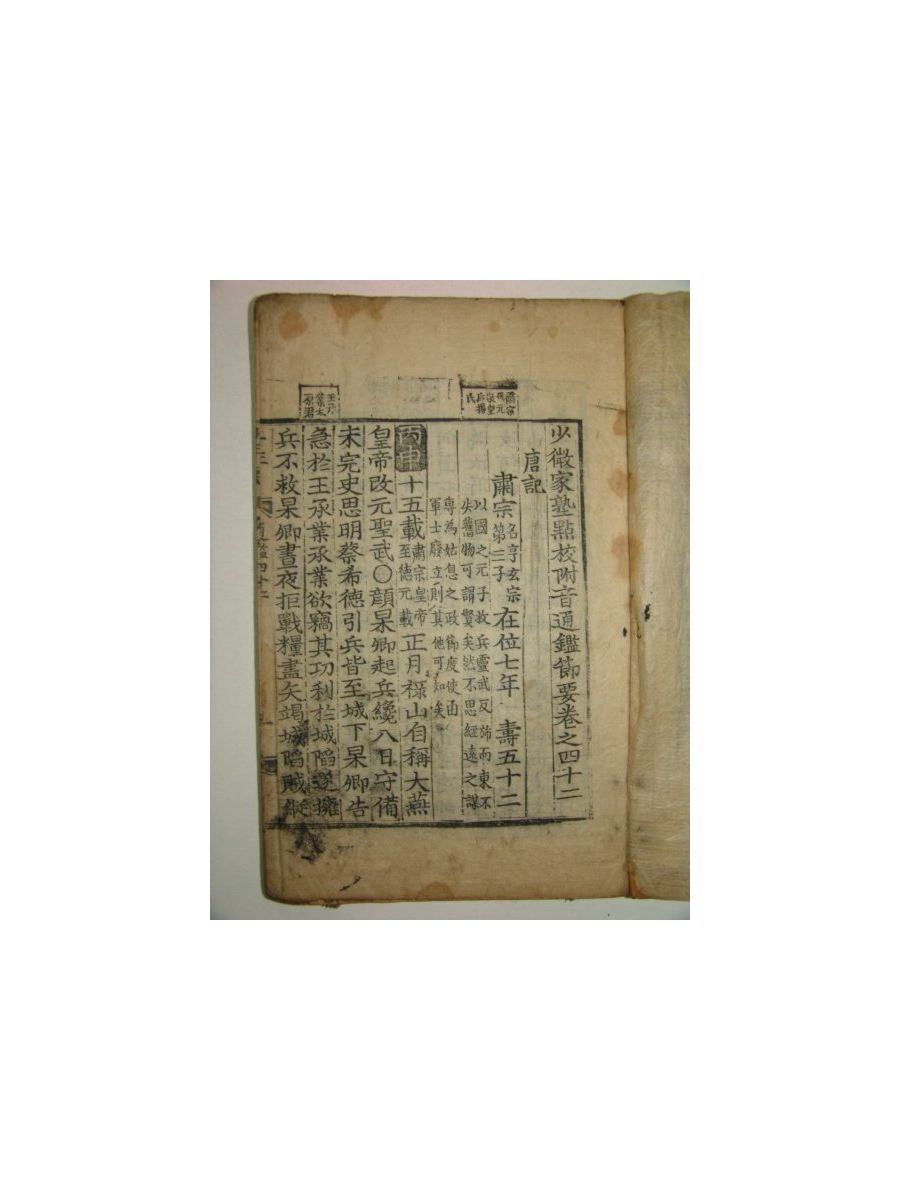 少微家塾點校附音通鑑節要卷之四十二
唐記
肅宗 名亨玄宗第三子 在位七年 壽五十二
以國之元子救兵靈武反旆而東不
失舊物可謂賢矣然不思經遠之謀
專為姑息之政節度使由
軍士廢立則其他可知矣
丙申 十五載 肅宗皇帝至德元載 正月祿山自稱大燕
皇帝改元聖武〇顏杲卿起兵纔八日守備
未完史思明蔡希德引兵皆至城下杲卿告
急於王承業承業欲竊其功利於城陷遂擁
兵不救杲卿晝夜拒戰糧盡矢竭城陷賊縱